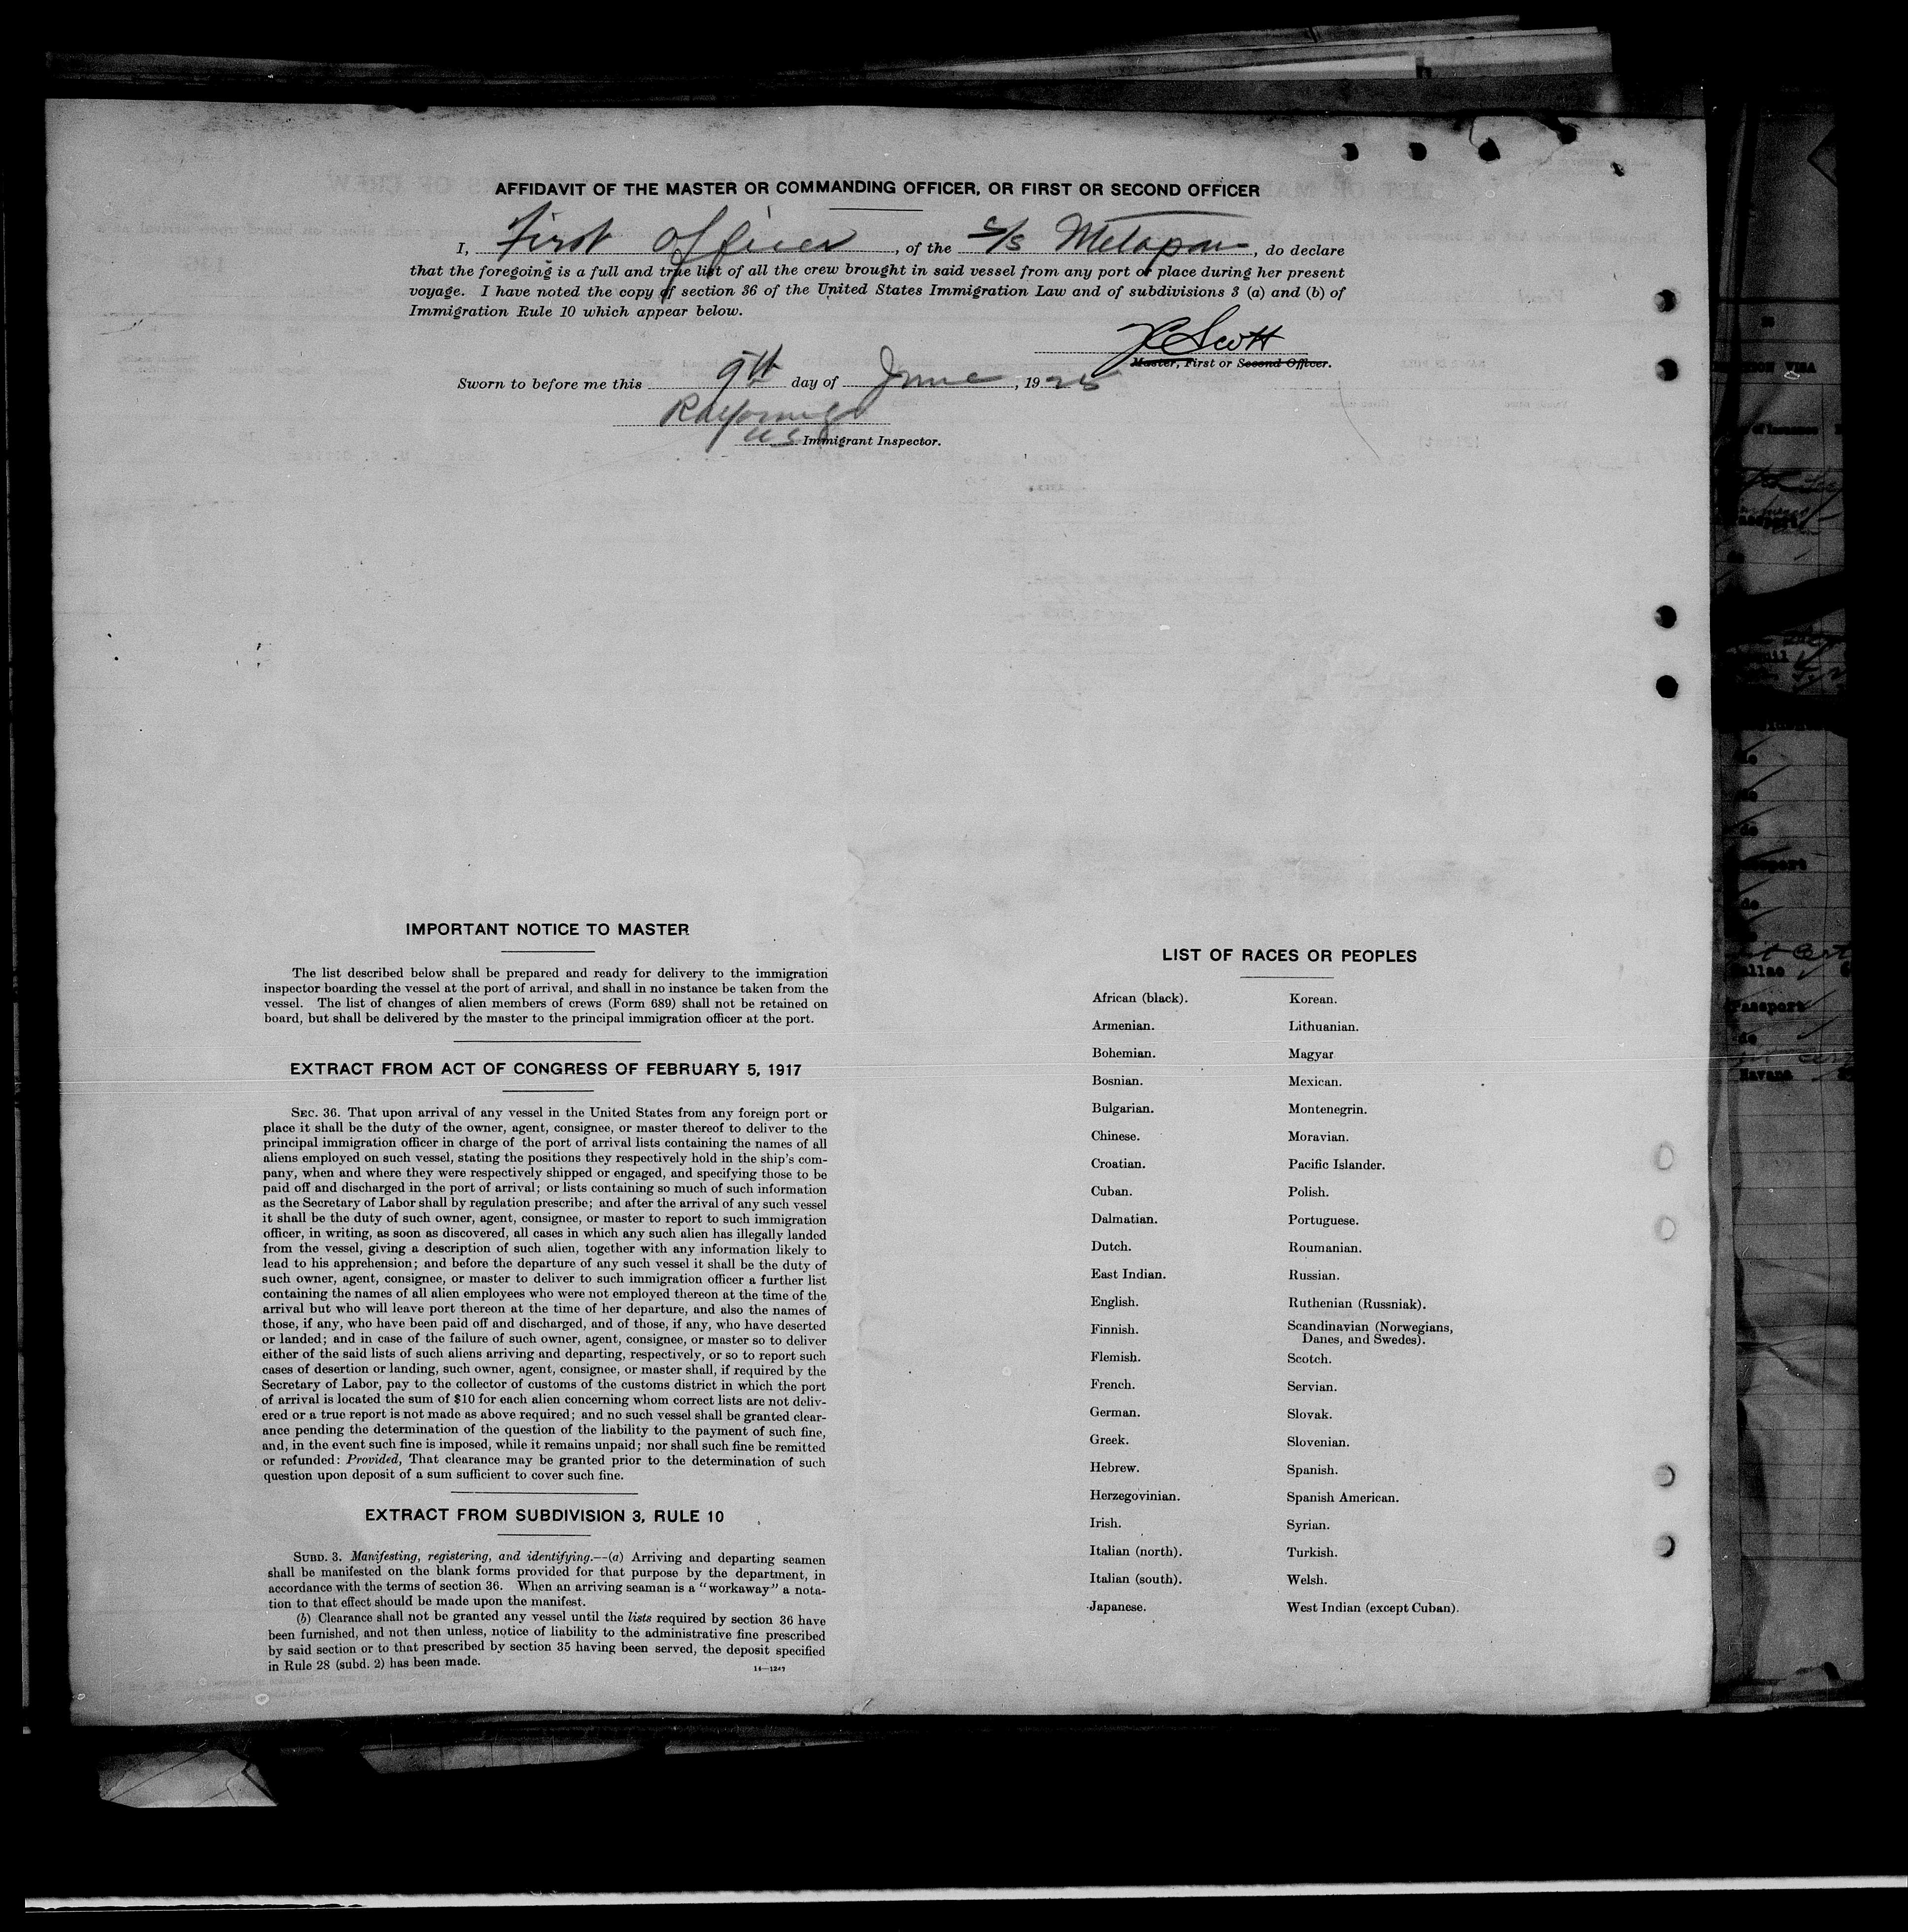 AFFIDAVIT OF THE MASTER OR COMMANDING OFFICER, OR FIRST OR SECOND OFFICER
I, First Officer, of the S/S Metapan, do declare
that the foregoing is a full and true list of all the crew brought in said vessel from any port or place during her present
voyage. I have noted the copy of section 36 of the United States Immigration Law and of subdivisions 3 (a) and (b) of
Immigration Rule 10 which appear below.
Scott
Master, First or Second Officer.
Sworn to before me this 9th day of June, 1925
U S Immigrant Inspector.
IMPORTANT NOTICE TO MASTER
The list described below shall be prepared and ready for delivery to the immigration
inspector boarding the vessel at the port of arrival, and shall in no instance be taken from the
vessel. The list of changes of alien members of crews (Form 689) shall not be retained on
board, but shall be delivered by the master to the principal immigration officer at the port.
EXTRACT FROM ACT OF CONGRESS OF FEBRUARY 5, 1917
SEC. 36. That upon arrival of any vessel in the United States from any foreign port or
place it shall be the duty of the owner, agent, consignee, or master thereof to deliver to the
principal immigration officer in charge of the port of arrival lists containing the names of all
aliens employed on such vessel, stating the positions they respectively hold in the ship's com-
pany, when and where they were respectively shipped or engaged, and specifying those to be
paid off and discharged in the port of arrival; or lists containing so much of such information
as the Secretary of Labor shall by regulation prescribe; and after the arrival of any such vessel
it shall be the duty of such owner, agent, consignee, or master to report to such immigration
officer, in writing, as soon as discovered, all cases in which any such alien has illegally landed
from the vessel, giving a description of such alien, together with any information likely to
lead to his apprehension; and before the departure of any such vessel it shall be the duty of
such owner, agent, consignee, or master to deliver to such immigration officer a further list
containing the names of all alien employees who were not employed thereon at the time of the
arrival but who will leave port thereon at the time of her departure, and also the names of
those, if any, who have been paid off and discharged, and of those, if any, who have deserted
or landed; and in case of the failure of such owner, agent, consignee, or master so to deliver
either of the said lists of such aliens arriving and departing, respectively, or so to report such
cases of desertion or landing, such owner, agent, consignee, or master shall, if required by the
Secretary of Labor, pay to the collector of customs of the customs district in which the port
of arrival is located the sum of $10 for each alien concerning whom correct lists are not deliv-
ered or a true report is not made as above required; and no such vessel shall be granted clear-
ance pending the determination of the question of the liability to the payment of such fine,
and, in the event such fine is imposed, while it remains unpaid; nor shall such fine be remitted
or refunded: Provided, That clearance may be granted prior to the determination of such
question upon deposit of a sum sufficient to cover such fine.
EXTRACT FROM SUBDIVISION 3, RULE 10
SUBD. 3. Manifesting, registering, and identifying.—(a) Arriving and departing seamen
shall be manifested on the blank forms provided for that purpose by the department, in
accordance with the terms of section 36. When an arriving seaman is a "workaway" a nota-
tion to that effect should be made upon the manifest.
(b) Clearance shall not be granted any vessel until the lists required by section 36 have
been furnished, and not then unless, notice of liability to the administrative fine prescribed
by said section or to that prescribed by section 35 having been served, the deposit specified
in Rule 28 (subd. 2) has been made.
14—1247
LIST OF RACES OR PEOPLES
African (black).
Armenian.
Bohemian.
Bosnian.
Bulgarian.
Chinese.
Croatian.
Cuban.
Dalmatian.
Dutch.
East Indian.
English.
Finnish.
Flemish.
French.
German.
Greek.
Hebrew.
Herzegovinian.
Irish.
Italian (north).
Italian (south).
Japanese.
Korean.
Lithuanian.
Magyar
Mexican.
Montenegrin.
Moravian.
Pacific Islander.
Polish.
Portuguese.
Roumanian.
Russian.
Ruthenian (Russniak).
Scandinavian (Norwegians,
Danes, and Swedes).
Scotch.
Servian.
Slovak.
Slovenian.
Spanish.
Spanish American.
Syrian.
Turkish.
Welsh.
West Indian (except Cuban).
Passport
Havana